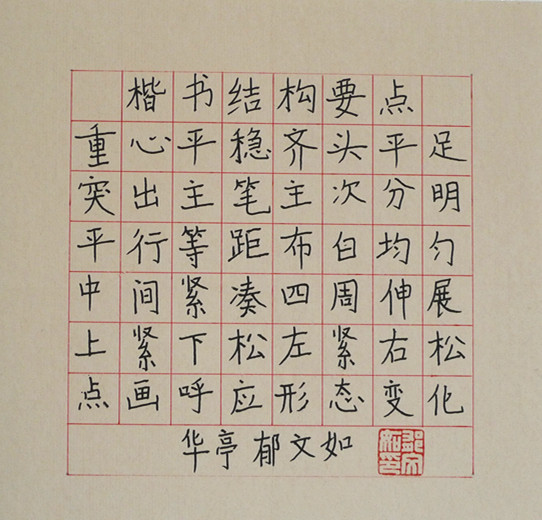 楷书结构要点
重心平稳齐头平足
突出主笔主次分明
平行等距布白均匀
中间紧凑四周伸展
上紧下松左紧右松
点画呼应形态变化
华亭 郁文如